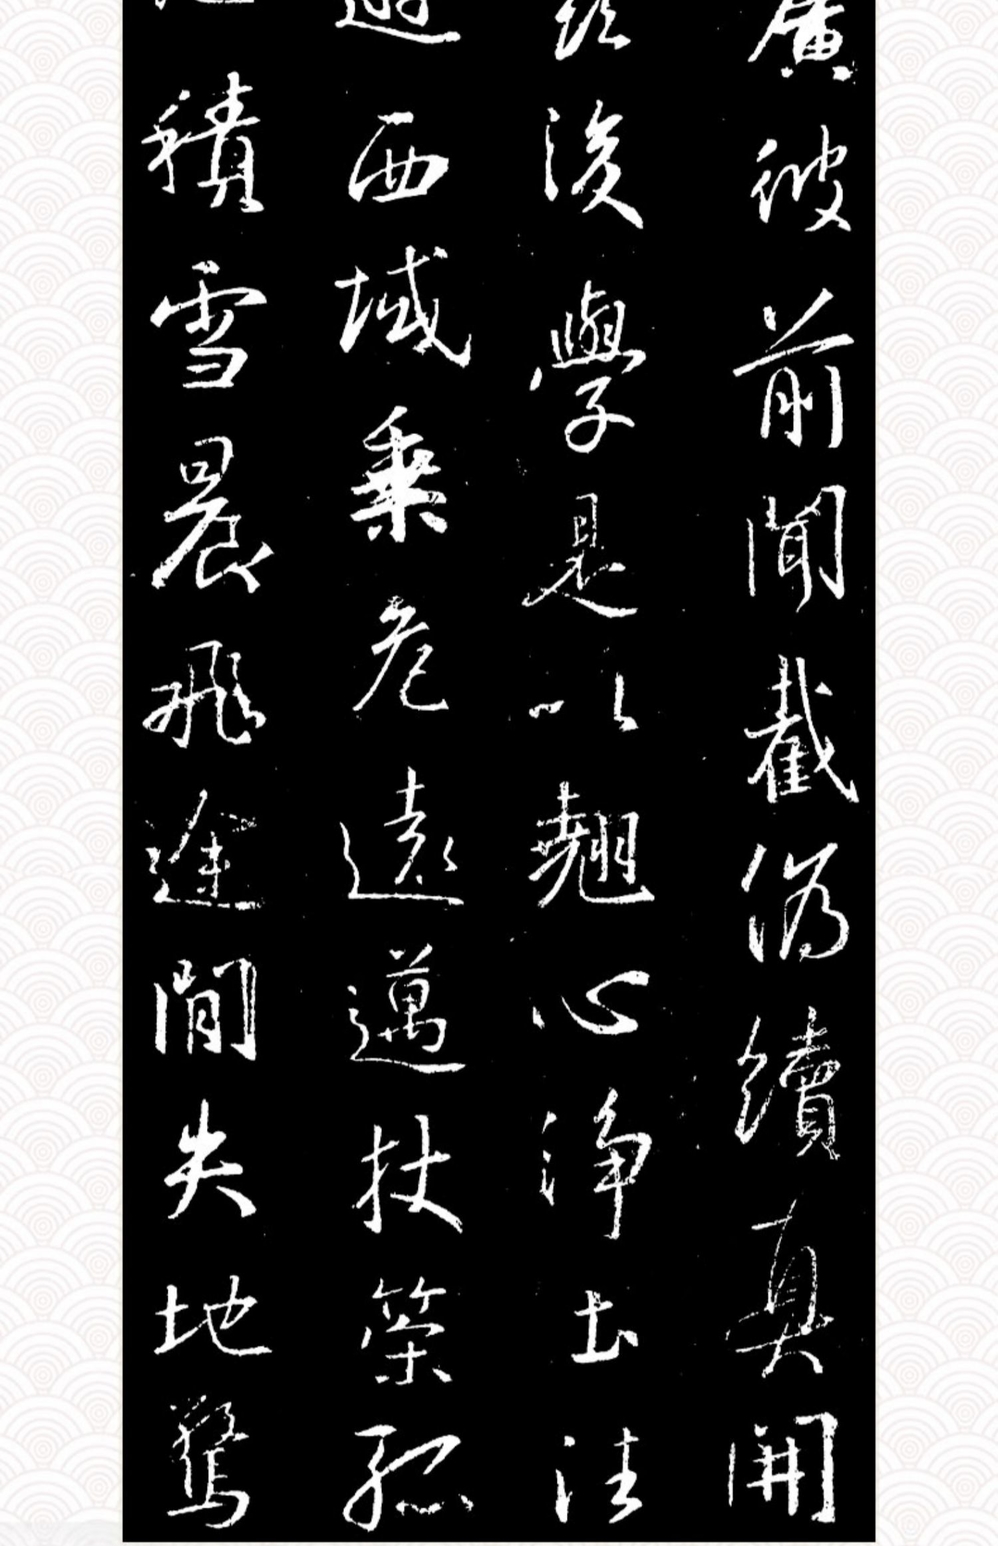 廣彼前聞截偽續真開
茲後學是以翹心淨土法
遊西域乗危遠邁杖策孤
積雪晨飛途閒失地驚